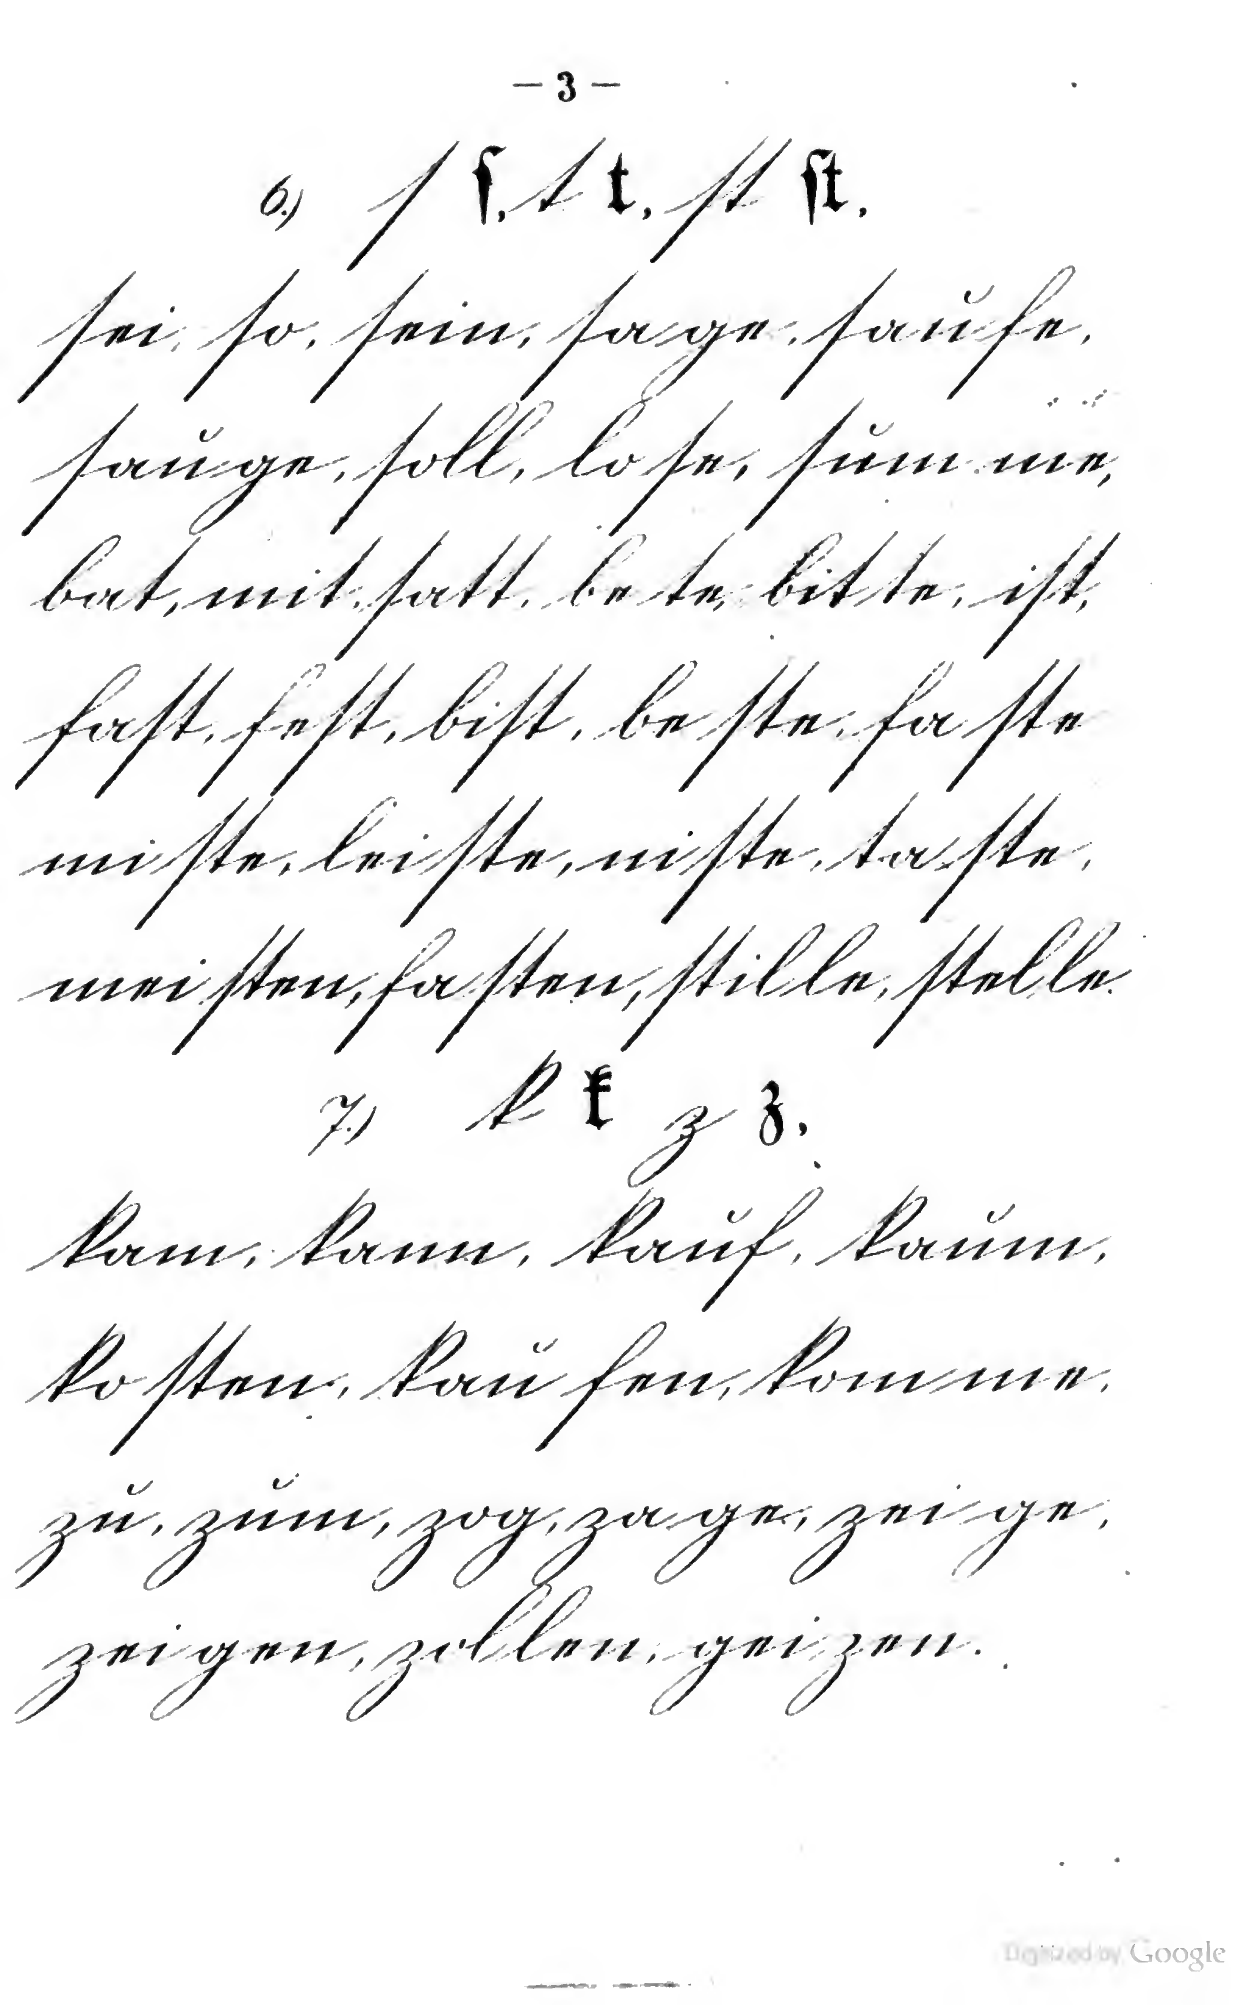 – 3 –
6.) ſ ſ, t t, ſt ſt,
ſei, ſo, ſein, ſage, ſaufe,
ſauge, ſoll, loſe, ſumme,
bat, mit, ſatt, bete, bitte, iſt,
faſt, feſt, biſt, beſte, faſte
miſte, leiſte, niſte, taſte,
meiſten, faſten, ſtille, ſtelle.
7.) k k z z,
kam, kann, kauf, kaum,
koſten, kaufen, komme,
zu, zum, zog, zage, zeige,
zeigen, zollen, geizen.
Digitized by Google